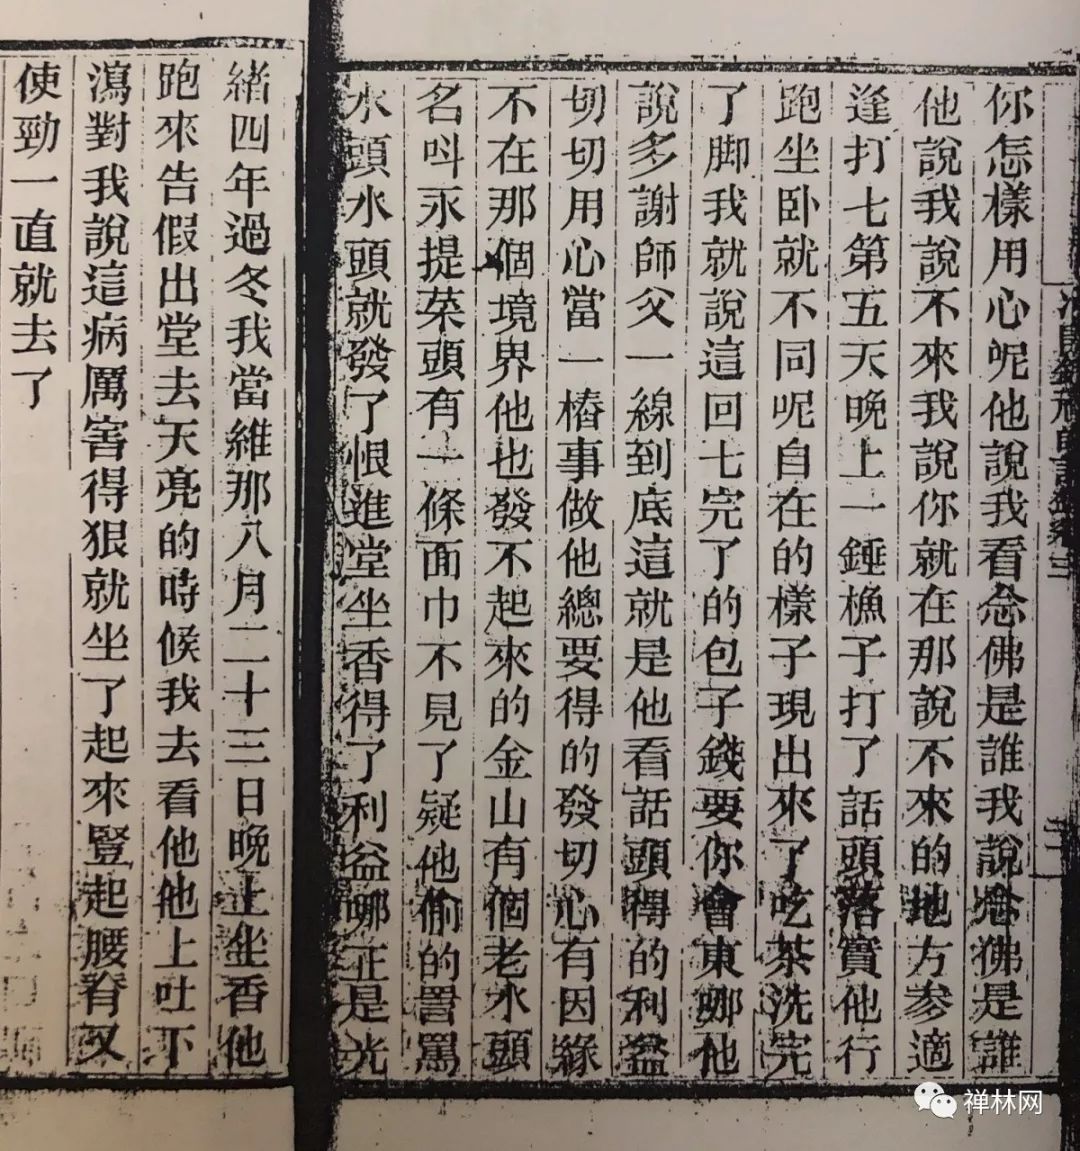 你怎樣用心呢他說我看念佛是誰我說念佛是誰
他說我說不來我說你就在那說不來的地方參適
逢打七第五天晚上一錘槌子打了話頭落實他行
跑坐卧就不同呢自在的樣子現出來了吃茶洗完
了脚我就說這回七完了的包子錢要你會東哪他
說多謝師父一線到底這就是他看話頭得的利益
切切用心當一樁事做他總要得的發切心有因緣
不在那個境界他也發不起來的金山有個老水頭
名呌永提菜頭有一條面巾不見了疑他偷的詈罵
水頭水頭就發了恨進堂坐香得了利益哪正是光
緒四年過冬我當維那八月二十三日晚上坐香他
跑來告假出堂去天亮的時候我去看他他上吐下
瀉對我說這病厲害得狠就坐了起來豎起腰脊又
使勁一直就去了
禅林网